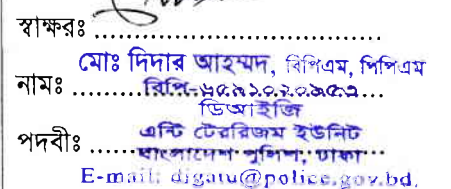 স্বাক্ষরঃ ................................
মোঃ দিদার আহম্মদ, বিপিএম, পিপিএম
নামঃ ........বিপি-................
ডিআইজি
পদবীঃ ....এন্টি টেররিজম ইউনিট
বাংলাদেশ পুলিশ, ঢাকা
E-mail: digatu@police.gov.bd.